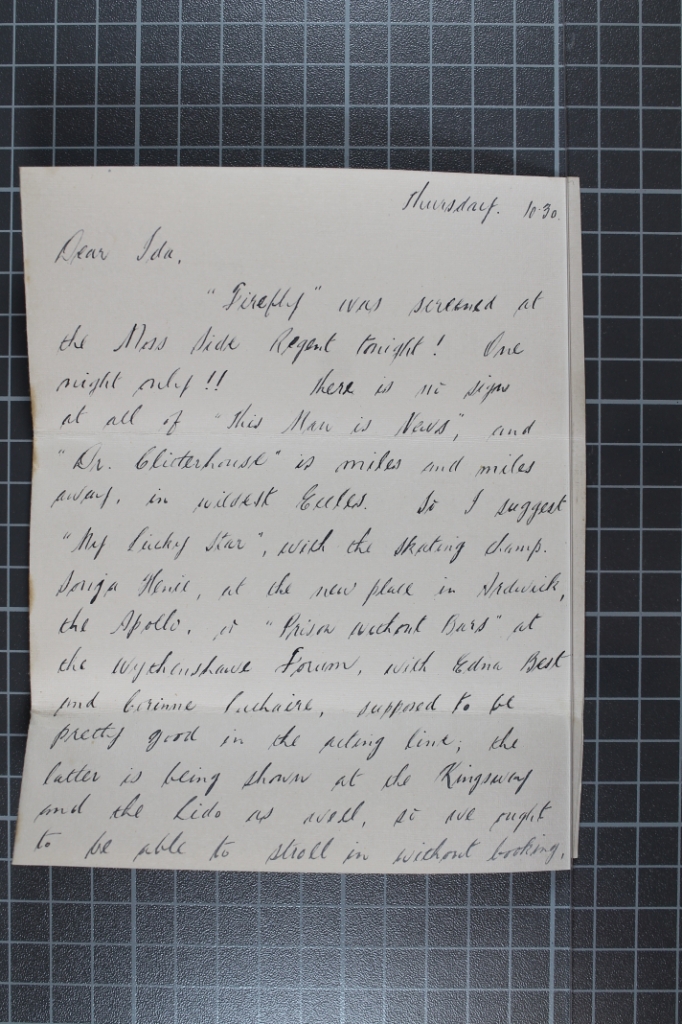 Thursday. 10.30.
Dear Ida,
"Firefly" was screened at
the Moss Side Regent tonight! One
night only!! There is no sign
at all of "This Man is News", and
"Dr. Clitterhouse" is miles and miles
away, in wildest Eccles. So I suggest
"My Lucky Star", with the skating champ.
Sonja Henie, at the new place in Ardwick,
the Apollo, or "Prison without Bars" at
the Wythenshawe Forum, with Edna Best
and Corinne Luchaire, supposed to be
pretty good in the acting line; the
latter is being shown at the Kingsway
and the Lido as well, so we ought
to be able to stroll in without booking,